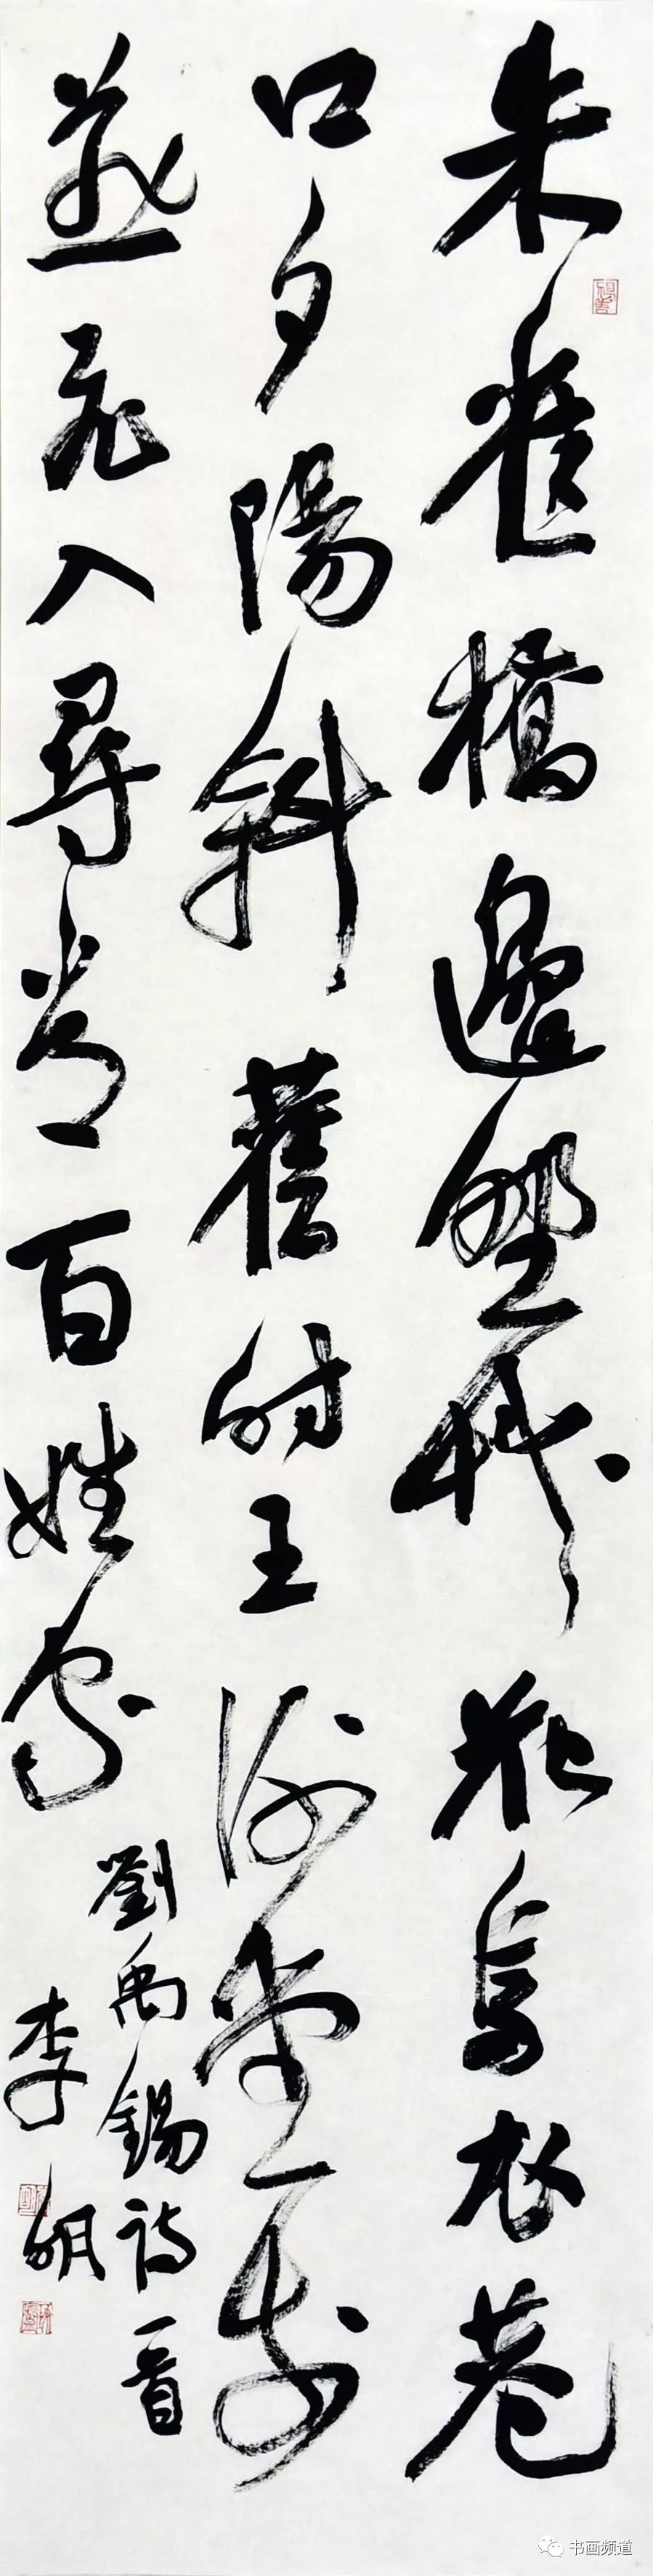 朱雀橋邊野草花烏衣巷
口夕陽斜舊時王謝堂前
燕飛入尋常百姓家
劉禹錫詩一首
李明
书画频道